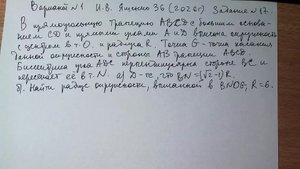 Вариант №1 И.В. Ященко 36 (2026г) Задание №17.
В прямоугольную трапецию ABCD с большим основа-
нием CD и прямыми углами A и D вписана окружность
с центром в т. O. и радиуса R. Точка G - точка касания
данной окружности и стороны AB трапеции ABCD.
Биссектриса угла ADC перпендикулярна стороне BC и
пересекает её в т. N. а) D-те, что BN=(√2-1)R.
б). Найти радиус окружности, вписанной в BNOG, R=6.